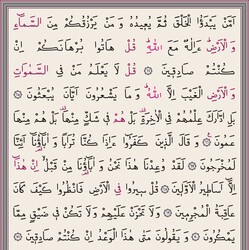 أَمَّن يَبْدَؤُا۟ ٱلْخَلْقَ ثُمَّ يُعِيدُهُۥ وَمَن يَرْزُقُكُم مِّنَ ٱلسَّمَآءِ
وَٱلْأَرْضِ ۗ أَءِلَـٰهٌ مَّعَ ٱللَّهِ ۚ قُلْ هَاتُوا۟ بُرْهَـٰنَكُمْ إِن
كُنتُمْ صَـٰدِقِينَ ۝ قُل لَّا يَعْلَمُ مَن فِى ٱلسَّمَـٰوَٰتِ
وَٱلْأَرْضِ ٱلْغَيْبَ إِلَّا ٱللَّهُ ۚ وَمَا يَشْعُرُونَ أَيَّانَ يُبْعَثُونَ ۝
بَلِ ٱدَّٰرَكَ عِلْمُهُمْ فِى ٱلْـَٔاخِرَةِ ۚ بَلْ هُمْ فِى شَكٍّ مِّنْهَا ۖ بَلْ هُم مِّنْهَا
عَمُونَ ۝ وَقَالَ ٱلَّذِينَ كَفَرُوٓا۟ أَءِذَا كُنَّا تُرَٰبًا وَءَابَآؤُنَآ أَئِنَّا
لَمُخْرَجُونَ ۝ لَقَدْ وُعِدْنَا هَـٰذَا نَحْنُ وَءَابَآؤُنَا مِن قَبْلُ إِنْ هَـٰذَآ
إِلَّآ أَسَـٰطِيرُ ٱلْأَوَّلِينَ ۝ قُلْ سِيرُوا۟ فِى ٱلْأَرْضِ فَٱنظُرُوا۟ كَيْفَ كَانَ
عَـٰقِبَةُ ٱلْمُجْرِمِينَ ۝ وَلَا تَحْزَنْ عَلَيْهِمْ وَلَا تَكُن فِى ضَيْقٍ مِّمَّا
يَمْكُرُونَ ۝ وَيَقُولُونَ مَتَىٰ هَـٰذَا ٱلْوَعْدُ إِن كُنتُمْ صَـٰدِقِينَ ۝